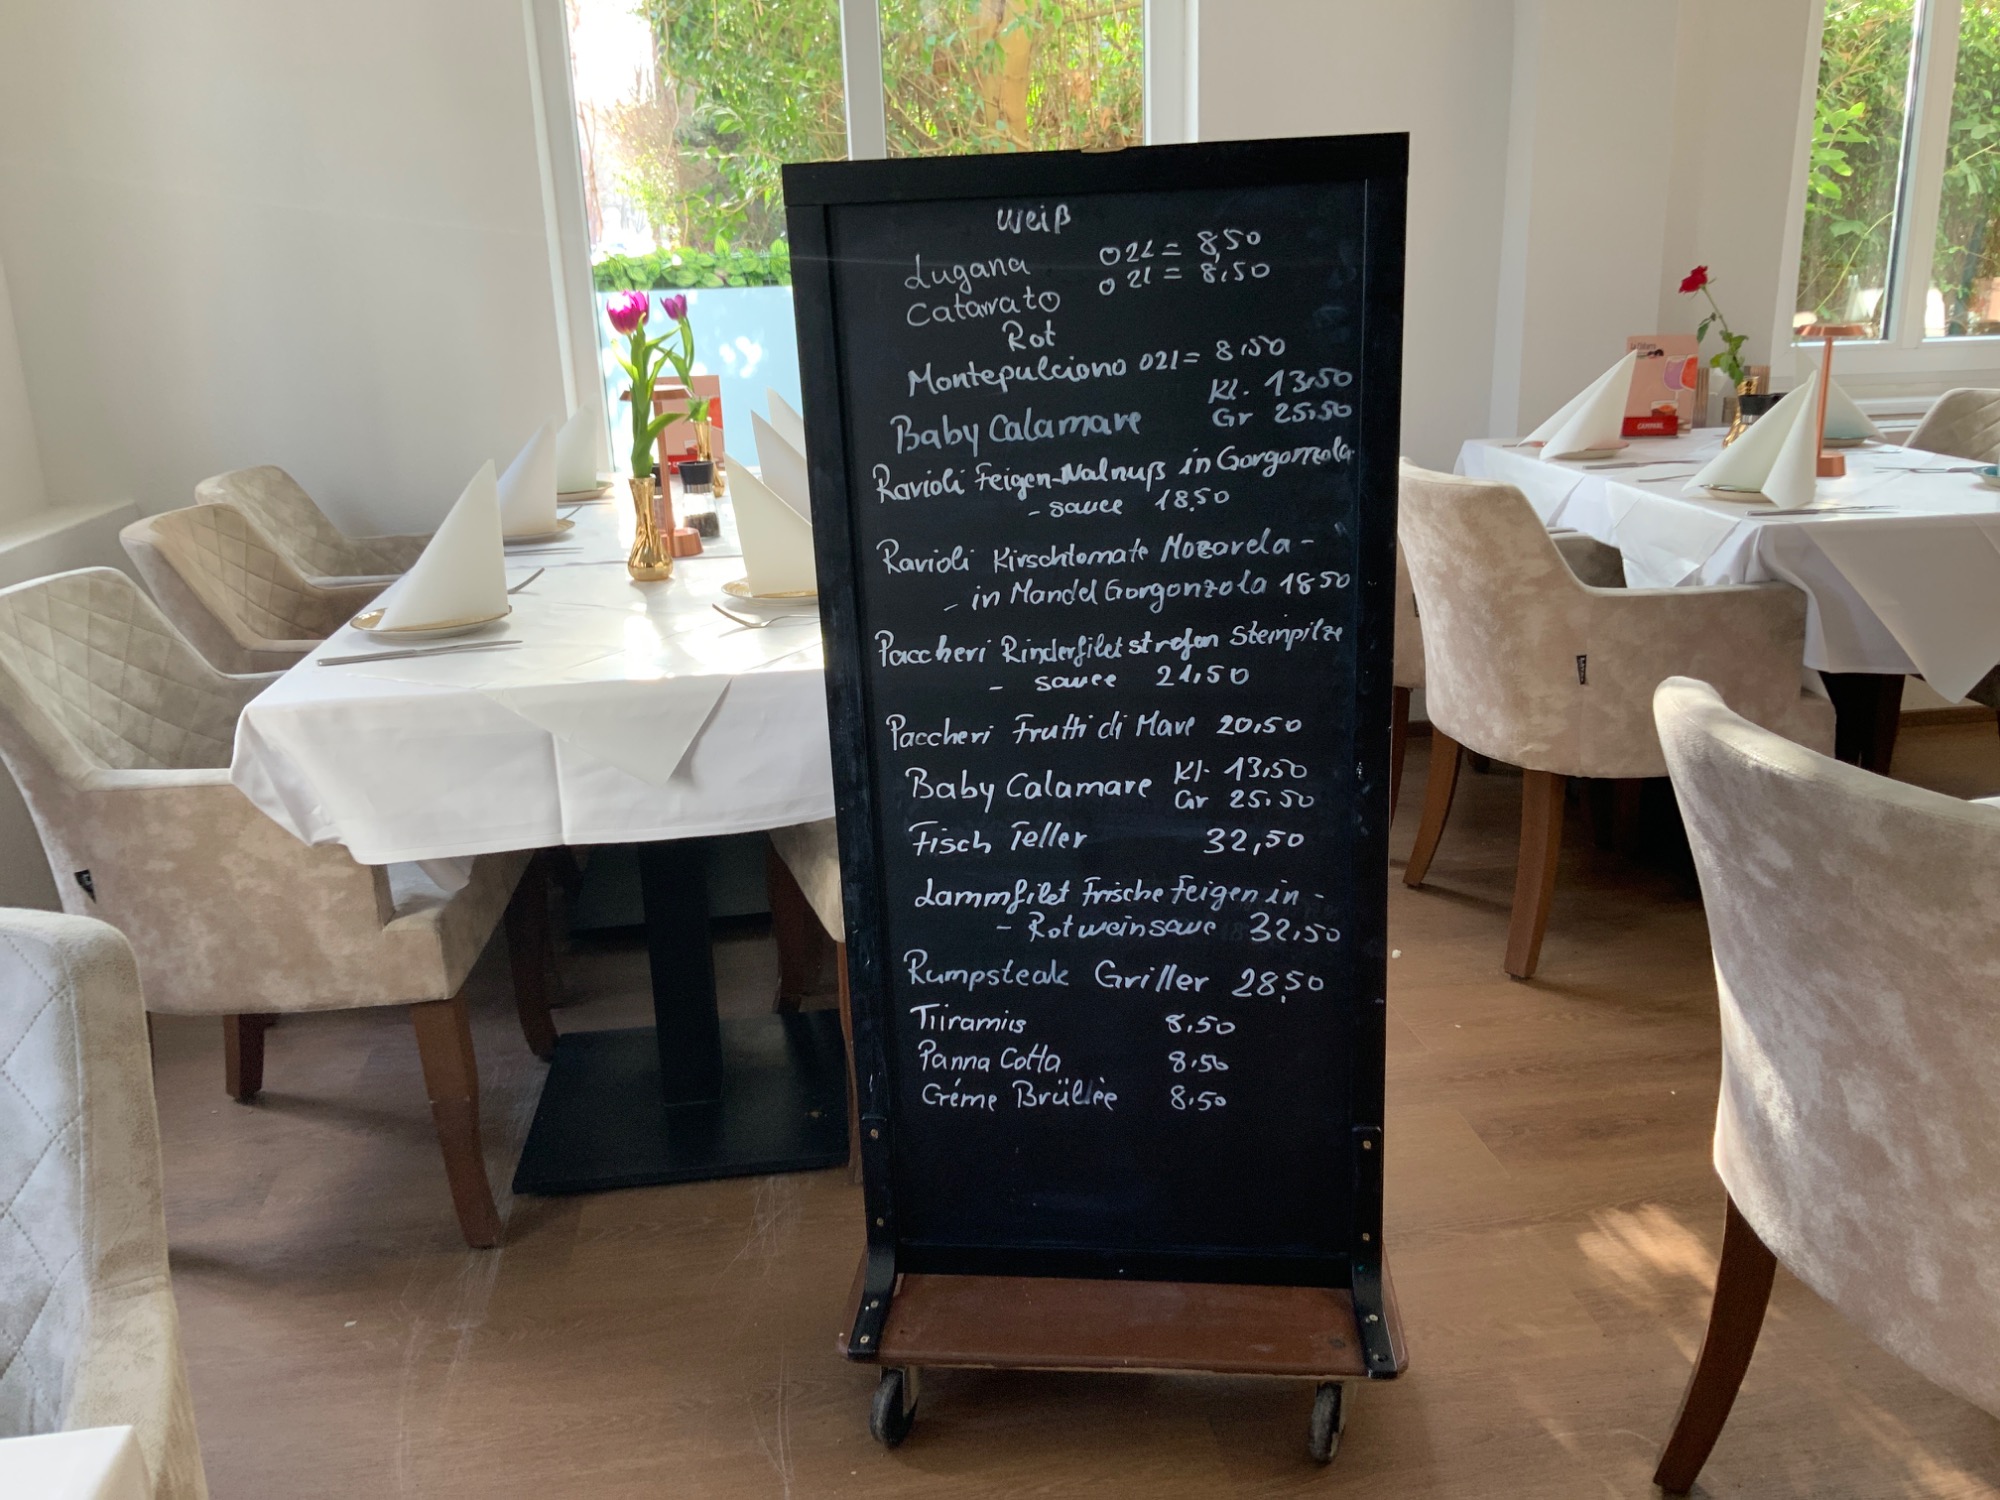 weiß
Lugana 02L = 8,50
Catarrato 02l = 8,50
Rot
Montepulciono 02l = 8,50
Baby Calamare Kl. 13,50
Gr 25,50
Ravioli Feigen-Walnuß in Gorgonzola
- sauce 18,50
Ravioli Kirschtomate Mozarela -
- in Mandel Gorgonzola 18 50
Paccheri Rinderfilet strefen Steinpilze
- sauce 21,50
Paccheri Frutti di Mare 20,50
Baby Calamare Kl. 13,50
Gr 25,50
Fisch Teller 32,50
Lammfilet Frische Feigen in -
- Rotweinsauce 32,50
Rumpsteak Griller 28,50
Tiramis 8,50
Panna Cotta 8,50
Créme Brüllèe 8,50
CAMPARI